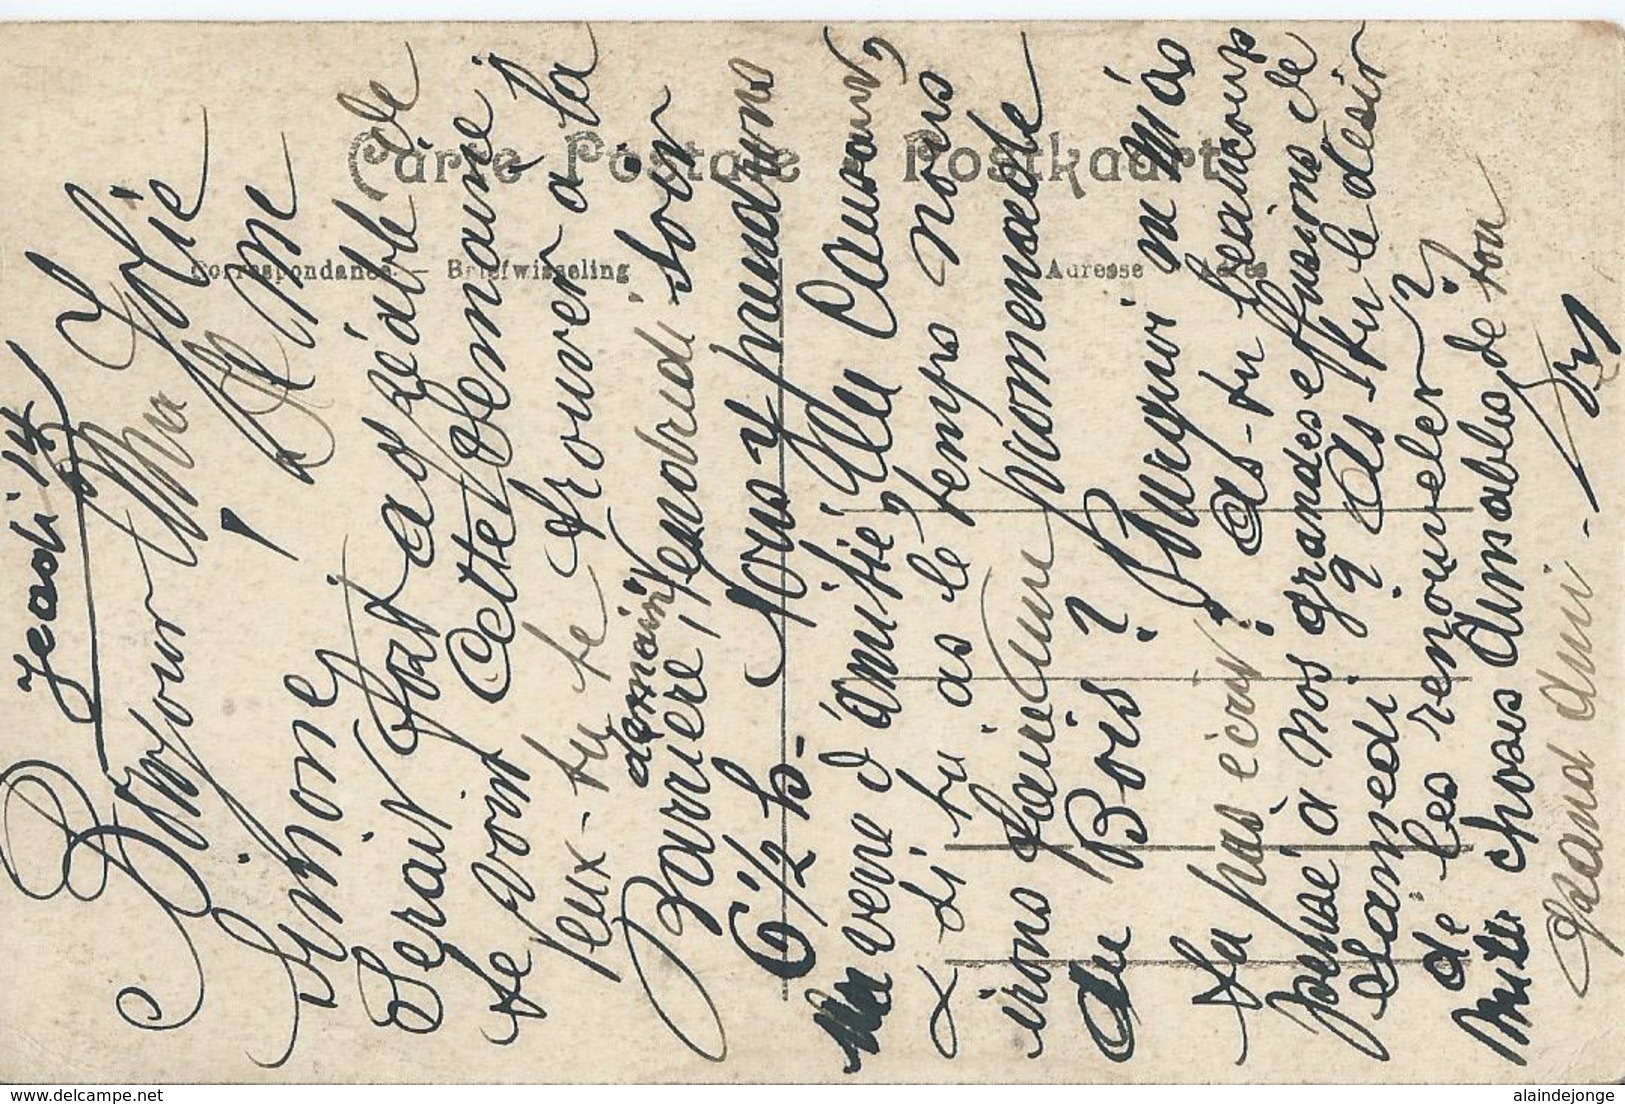 Carte Postale Postkaart
Correspondance. — Briefwisseling
Adresse — Adres
Jeudi 14
Bonjour Ma Jolie
Simone, ! Il me
Serait fort agréable de
te voir cette semaine;
Peux-tu te trouver à la
Barrière, (demain) vendredi soir
6 1/2 h - Nous y prendrons
un verre d'amitié, et nous causerons,
& si tu as le temps nous
irons faire une promenade
au Bois? Pourquoi ne m'as
tu pas écrit? as-tu beaucoup
pensé à nos grandes effusions de
Samedi? As-tu le désir
de les renouveler?
Mille choses aimables de ton
Grand Ami -
alaindejonge